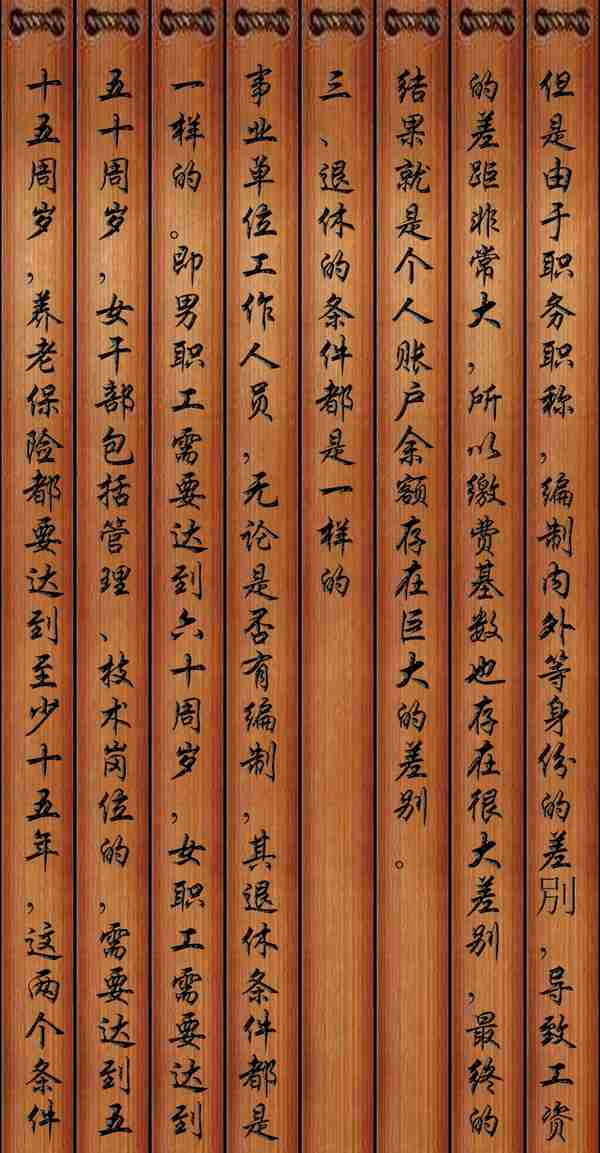 但是由于职务职称，编制内外等身份的差別，导致工资
的差距非常大，所以缴费基数也存在很大差别，最终的
结果就是个人账户余额存在巨大的差别。
三、退休的条件都是一样的
事业单位工作人员，无论是否有编制，其退休条件都是
一样的。即男职工需要达到六十周岁，女职工需要达到
五十周岁，女干部包括管理、技术岗位的，需要达到五
十五周岁，养老保险都要达到至少十五年，这两个条件